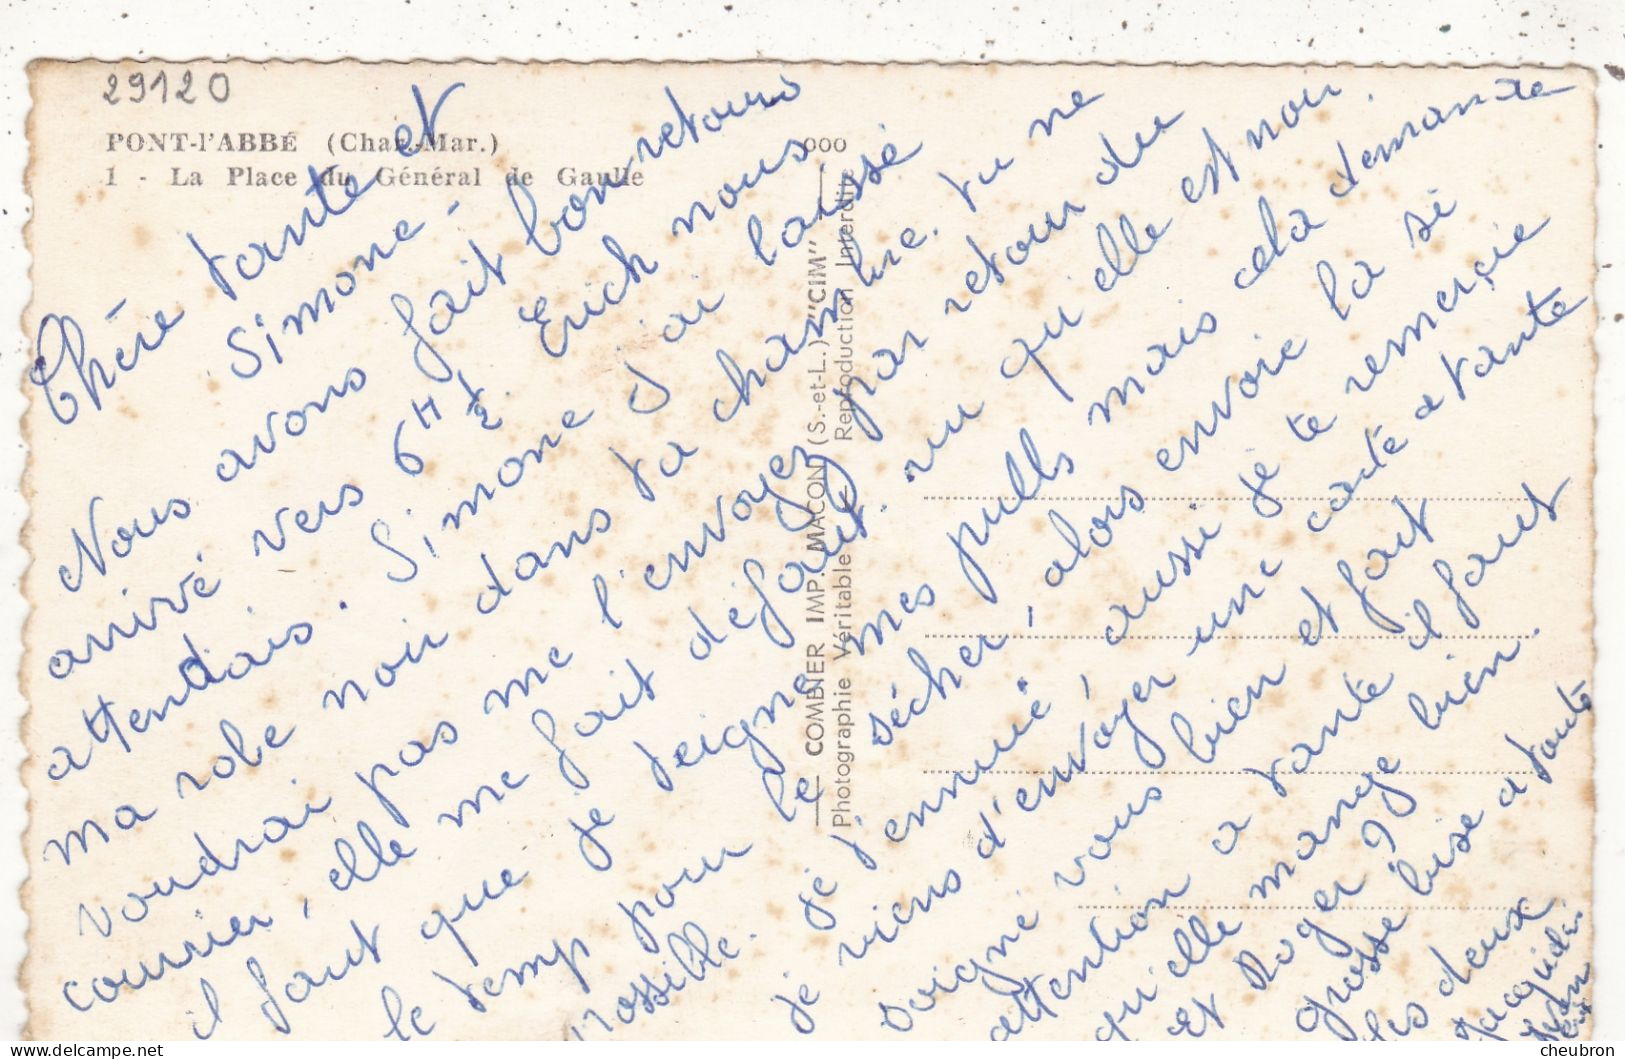 29120
PONT-l'ABBÉ (Char.-Mar.)
1 - La Place du Général de Gaulle
000
COMBIER IMP. MACON (S.-et-L.) "CIM"
Photographie Véritable - Reproduction Interdite
Chère tante et
Simone -
Nous avons fait bon retour
arrivé vers 6H 1/2. Erich nous
attendais. Simone J'ai laissé
ma robe noir dans ta chambre. tu ne
voudrai pas me l'envoyez par retour du
courrier, elle me fait défaut. vu qu'elle est noir.
il faut que je teigne mes pulls mais cela demande
le temp pour le sécher, alors envoie la si
possible. je t'ennuie aussi je te remerçie
je viens d'envoyer une carte a tante
soigné vous bien et fait
attention a tante il faut
qu'elle mange bien.
et Roger ?
grosse bise a toute
les deux
Jacquie
cheubron.com